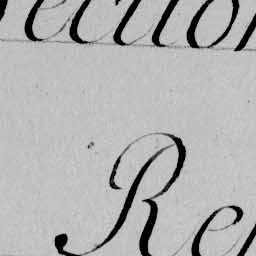 ection
Re